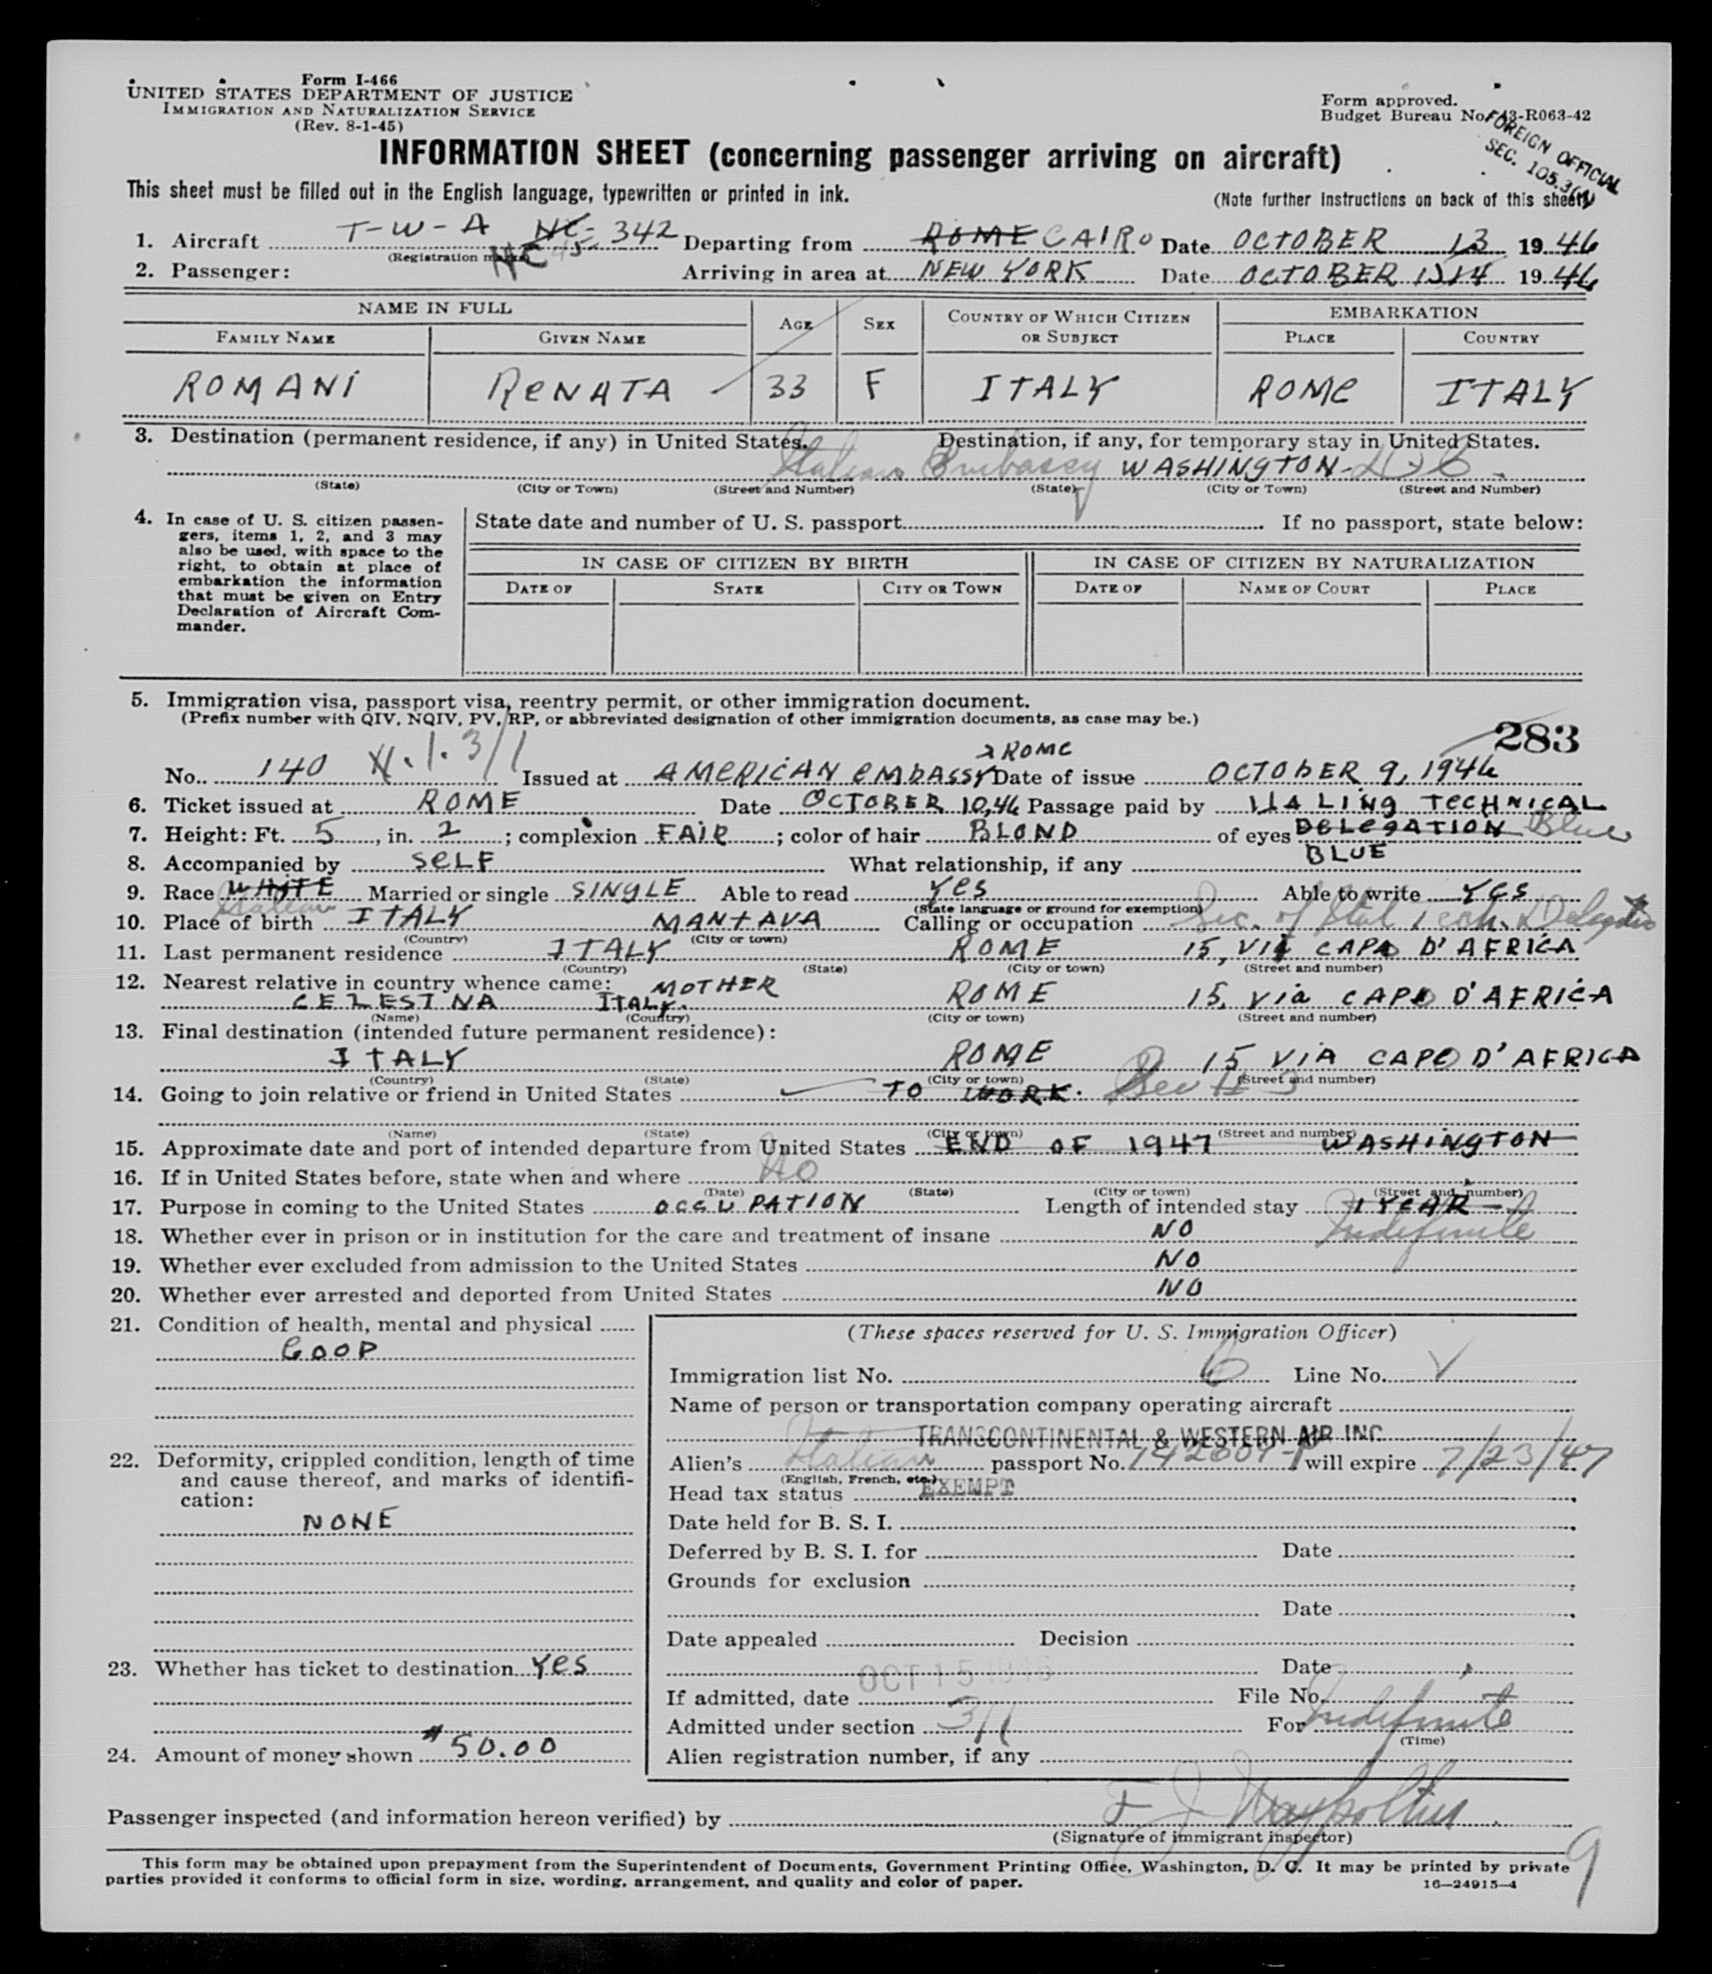 Form I-466
UNITED STATES DEPARTMENT OF JUSTICE
IMMIGRATION AND NATURALIZATION SERVICE
(Rev. 8-1-45)
Form approved.
Budget Bureau No. 43-R063-42
FOREIGN OFFICIAL
SEC. 105.3(A)
INFORMATION SHEET (concerning passenger arriving on aircraft)
This sheet must be filled out in the English language, typewritten or printed in ink.
(Note further instructions on back of this sheet)
1. Aircraft T-W-A NC 342 Departing from ROME CAIRO Date OCTOBER 13 1946
(Registration mark) NC 45
2. Passenger: Arriving in area at NEW YORK Date OCTOBER 14 1946
NAME IN FULL AGE SEX COUNTRY OF WHICH CITIZEN OR SUBJECT EMBARKATION
FAMILY NAME GIVEN NAME PLACE COUNTRY
ROMANI RENATA 33 F ITALY ROME ITALY
3. Destination (permanent residence, if any) in United States. Destination, if any, for temporary stay in United States.
Italian Embassy WASHINGTON-D.C.
(State) (City or Town) (Street and Number) (State) (City or Town) (Street and Number)
4. In case of U. S. citizen passen-
gers, items 1, 2, and 3 may
also be used, with space to the
right, to obtain at place of
embarkation the information
that must be given on Entry
Declaration of Aircraft Com-
mander.
State date and number of U. S. passport If no passport, state below:
IN CASE OF CITIZEN BY BIRTH IN CASE OF CITIZEN BY NATURALIZATION
DATE OF STATE CITY OR TOWN DATE OF NAME OF COURT PLACE
5. Immigration visa, passport visa, reentry permit, or other immigration document.
(Prefix number with QIV, NQIV, PV, RP, or abbreviated designation of other immigration documents, as case may be.)
283
ROME
No. 140 3/1 Issued at AMERICAN EMBASSY Date of issue OCTOBER 9, 1946
6. Ticket issued at ROME Date OCTOBER 10,46 Passage paid by ITALING TECHNICAL
7. Height: Ft. 5, in. 2; complexion FAIR; color of hair BLOND of eyes DELEGATION Blue
BLUE
8. Accompanied by SELF What relationship, if any
9. Race WHITE Married or single SINGLE Able to read YES Able to write YES
Italian (State language or ground for exemption)
10. Place of birth ITALY MANTAVA Calling or occupation Sec. of Ital Tech. Delegation
(Country) (City or town)
11. Last permanent residence ITALY ROME 15, VIA CAPO D'AFRICA
(Country) (State) (City or town) (Street and number)
12. Nearest relative in country whence came: MOTHER
CELESTINA ITALY. ROME 15, VIA CAPO D'AFRICA
(Name) (Country) (City or town) (Street and number)
13. Final destination (intended future permanent residence):
ITALY ROME 15 VIA CAPO D'AFRICA
(Country) (State) (City or town) (Street and number)
14. Going to join relative or friend in United States TO WORK. See # 3
(Name) (State) (City or town) (Street and number)
15. Approximate date and port of intended departure from United States END OF 1947 WASHINGTON
16. If in United States before, state when and where No
(Date) (State) (City or town) (Street and number)
17. Purpose in coming to the United States OCCUPATION Length of intended stay 1 YEAR
Indefinite
18. Whether ever in prison or in institution for the care and treatment of insane NO
19. Whether ever excluded from admission to the United States NO
20. Whether ever arrested and deported from United States NO
21. Condition of health, mental and physical
GOOD
22. Deformity, crippled condition, length of time
and cause thereof, and marks of identifi-
cation:
NONE
23. Whether has ticket to destination YES
24. Amount of money shown $50.00
(These spaces reserved for U. S. Immigration Officer)
Immigration list No. 6 Line No. V
Name of person or transportation company operating aircraft
TRANSCONTINENTAL & WESTERN AIR INC
Alien's Italian passport No. 142609-P will expire 7/23/47
(English, French, etc.)
Head tax status EXEMPT
Date held for B. S. I.
Deferred by B. S. I. for Date
Grounds for exclusion
Date
Date appealed Decision
Date
OCT 15 1946
If admitted, date File No.
Admitted under section 3/1 For Indefinite
(Time)
Alien registration number, if any
Passenger inspected (and information hereon verified) by F J
(Signature of immigrant inspector)
9
This form may be obtained upon prepayment from the Superintendent of Documents, Government Printing Office, Washington, D. C. It may be printed by private
parties provided it conforms to official form in size, wording, arrangement, and quality and color of paper.
16—24915-4